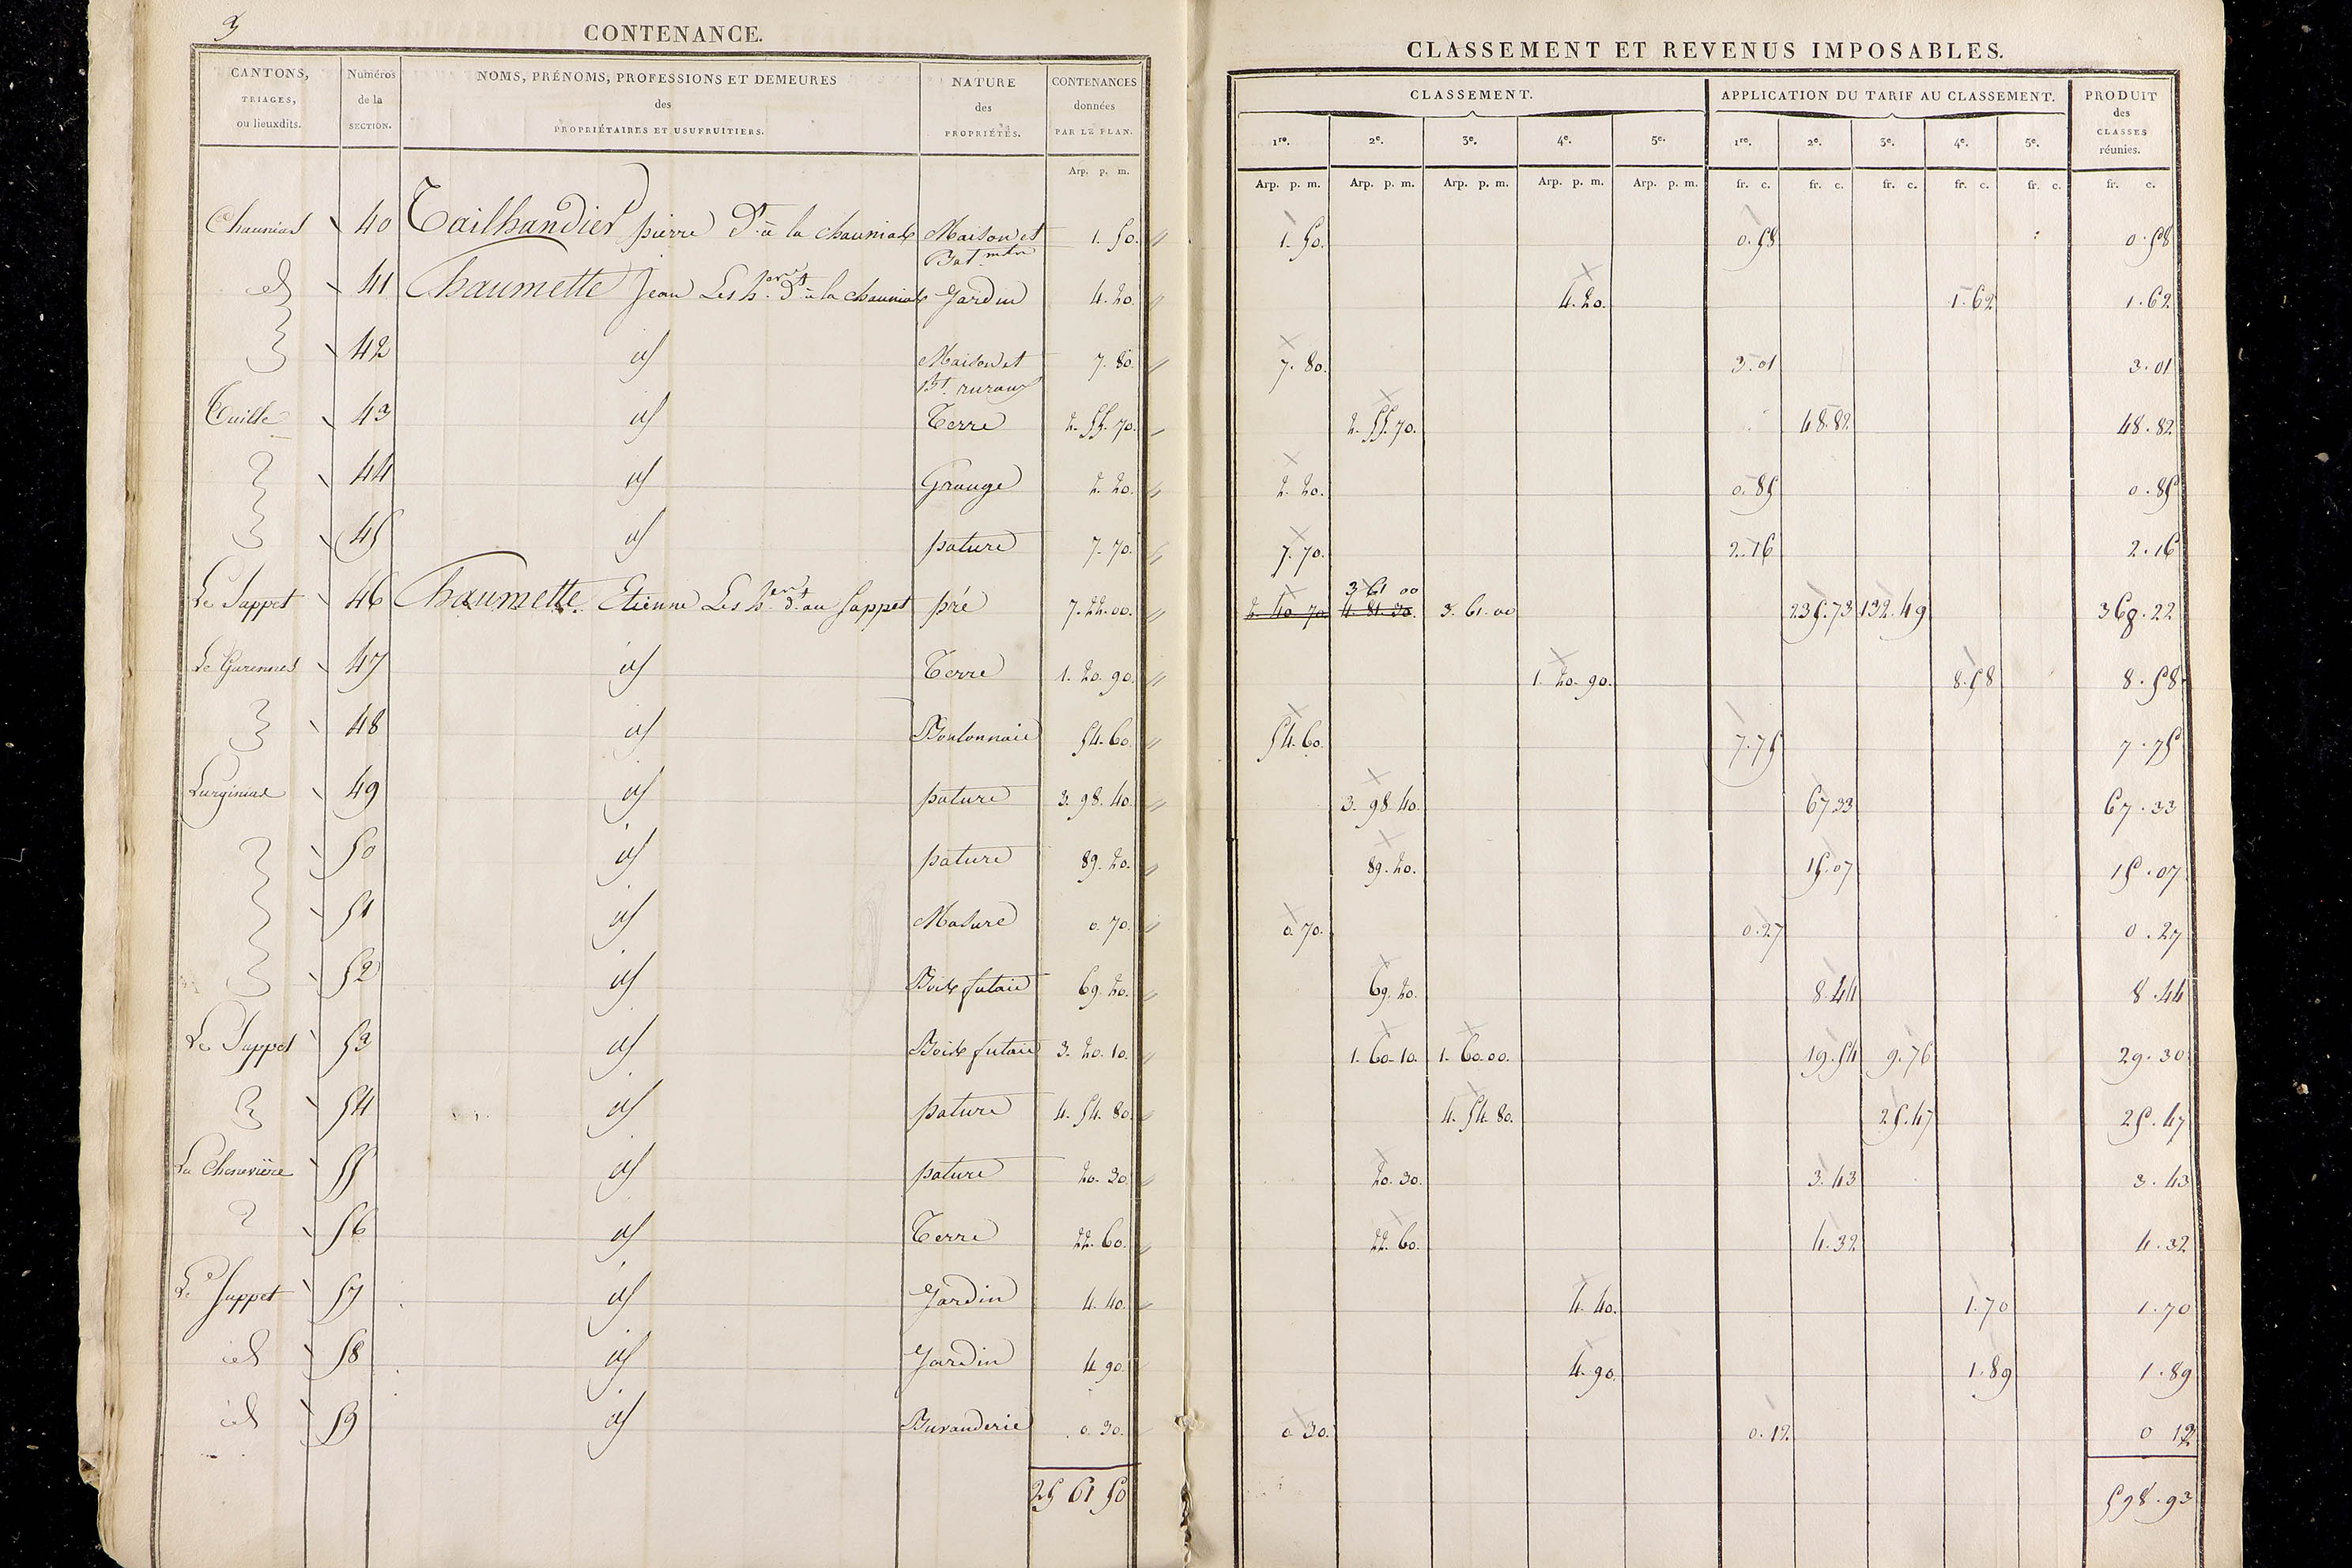 3
CONTENANCE.
CANTONS, TRIAGES, ou lieuxdits.
Numéros de la SECTION.
NOMS, PRÉNOMS, PROFESSIONS ET DEMEURES des PROPRIÉTAIRES ET USUFRUITIERS.
NATURE des PROPRIÉTÉS.
CONTENANCES données PAR LE PLAN.
Arp. p. m.
CLASSEMENT ET REVENUS IMPOSABLES.
CLASSEMENT.
APPLICATION DU TARIF AU CLASSEMENT.
PRODUIT des CLASSES réunies.
1re. 2e. 3e. 4e. 5e. 1re. 2e. 3e. 4e. 5e.
Arp. p. m. Arp. p. m. Arp. p. m. Arp. p. m. Arp. p. m. fr. c. fr. c. fr. c. fr. c. fr. c. fr. c.
40 Tailhandier pierre à la Maison et 1. 50. 1. 50. 0.58 0.58
id 41 Chaumette Jean Les à la Jardin 4. 20. 4. 20. 1.62 1.62
42 id Maison et Bt ruraux 7. 80. 7. 80. 3.01 3.01
43 id Terre 2. 55. 70. 2. 55. 70. 48.82 48.82
44 id Grange 2. 20. 2. 20. 0.85 0.85
45 id pature 7. 70. 7. 70. 2.16 2.16
Le Sappet 46 Chaumette Etienne Les au Sappet pré 7. 22. 00. 2. 40 70. 4. 81 30. 3 61 00 3. 61. 00 235.73 132.49 368.22
Le Garennes 47 id Terre 1. 20. 90. 1. 20. 90. 8.58 8.58
48 id 54. 60. 54. 60. 7.75 7.75
49 id pature 3. 98. 40. 3. 98. 40. 67.33 67.33
50 id pature 89. 20. 89. 20. 15.07 15.07
51 id Masure 0. 70. 0. 70. 0.27 0.27
52 id Bois futaie 69. 20. 69. 20. 8.44 8.44
Le Sappet 53 id Bois futaie 3. 20. 10. 1. 60. 10. 1. 60. 00. 19.54 9.76 29.30
54 id pature 4. 54. 80. 4. 54. 80. 25.47 25.47
La Chenevière 55 id pature 20. 30. 20. 30. 3.43 3.43
56 id Terre 22. 60. 22. 60. 4.32 4.32
Le Sappet 57 id Jardin 4. 40. 4. 40. 1.70 1.70
id 58 id Jardin 4. 90. 4. 90. 1.89 1.89
id 59 id Buranderie 0. 30. 0. 30. 0.12 0 12
25 61 50 598.93